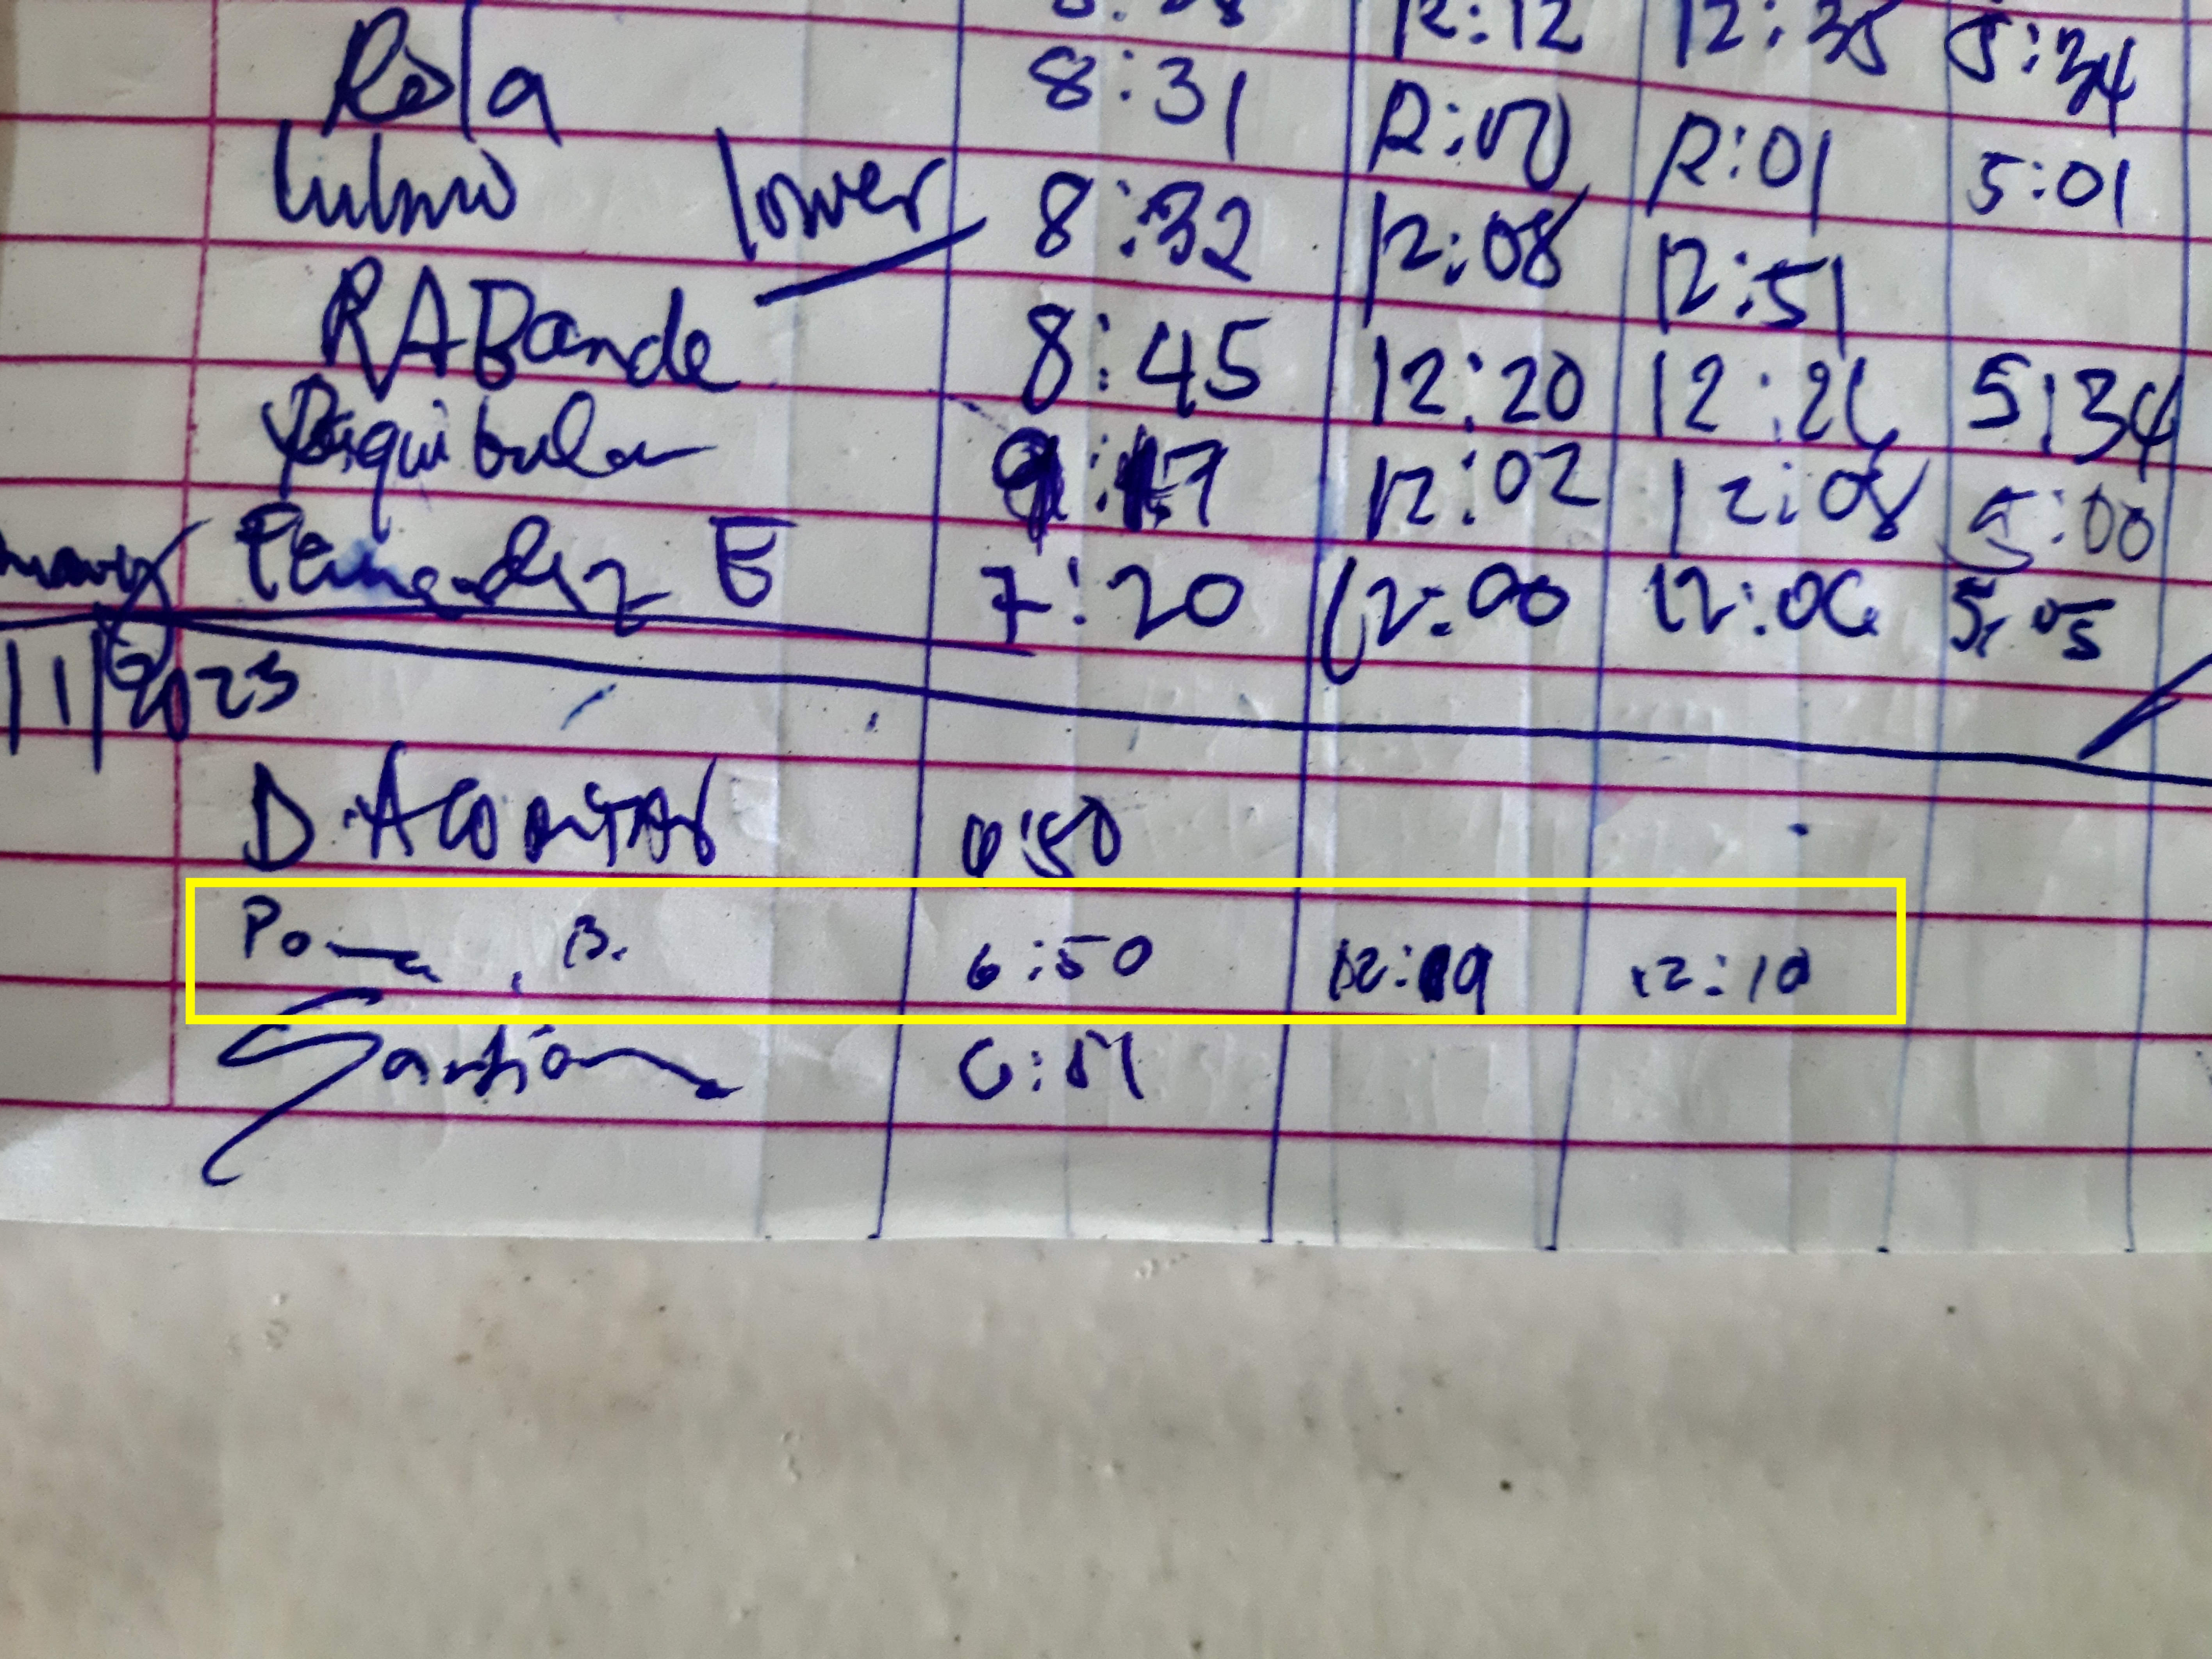 12:12 12:35 5:34
Rola 8:31 12:00 12:01 5:01
lower 8:32 12:08 12:51
RABande 8:45 12:20 12:26 5:34
Piquibulan 12:02 12:08 5:00
Fernandez E 7:20 12:00 12:06 5:05
11/2023
D. 6:50
B. 6:50 12:09 12:10
Santian 6:51